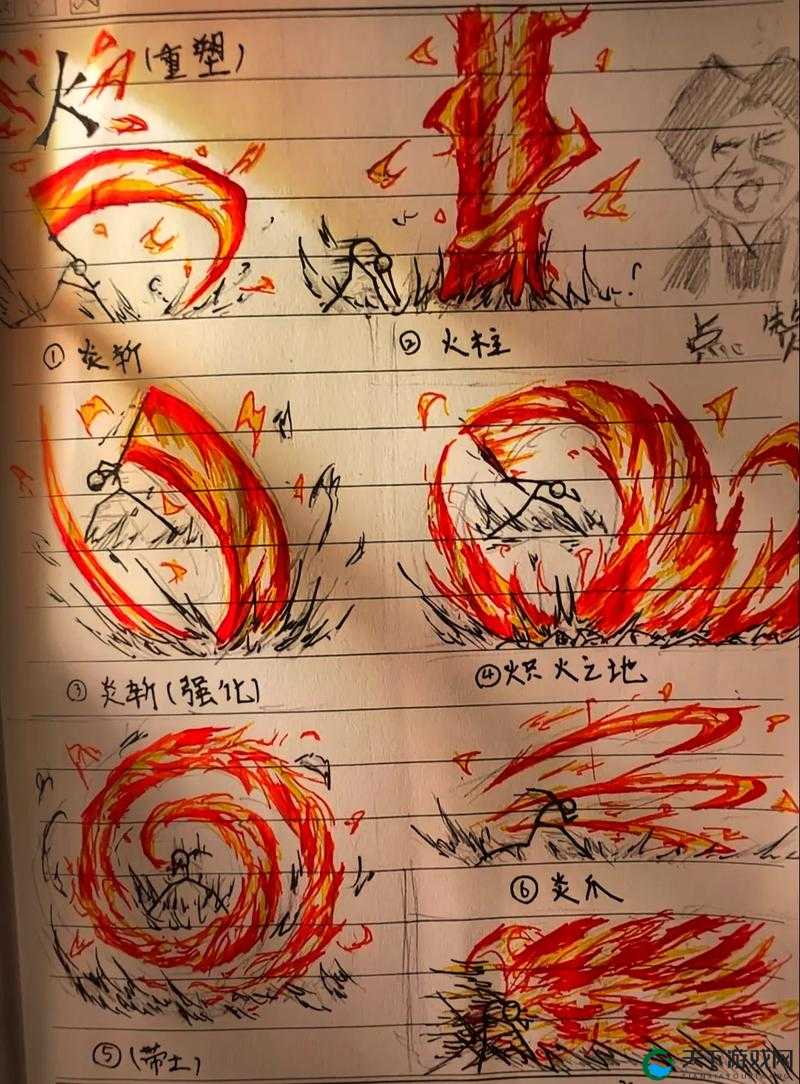 火 (重塑)
① 炎斩
② 火柱
点赞
③ 炎斩(强化)
④炽火之地
⑤(带土)
⑥ 炎爪
天下游戏网